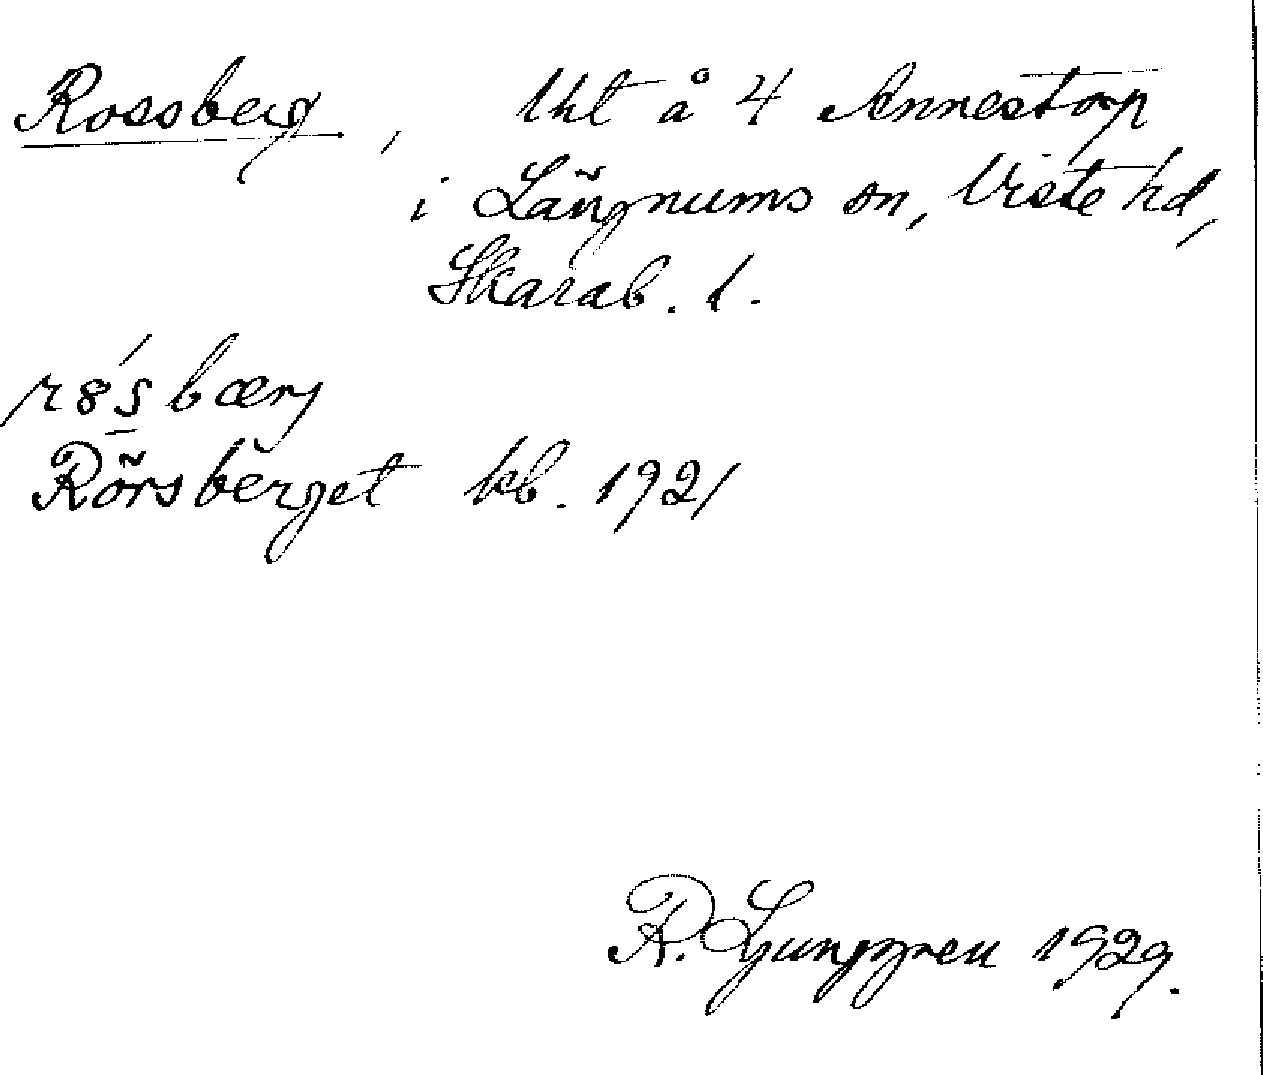 Rossberg, lht å 4 Annestorp
i Långnums sn, Viste hd,
Skarab. l.
Rörsberget kb. 1921
R. Ljunggren 1929.